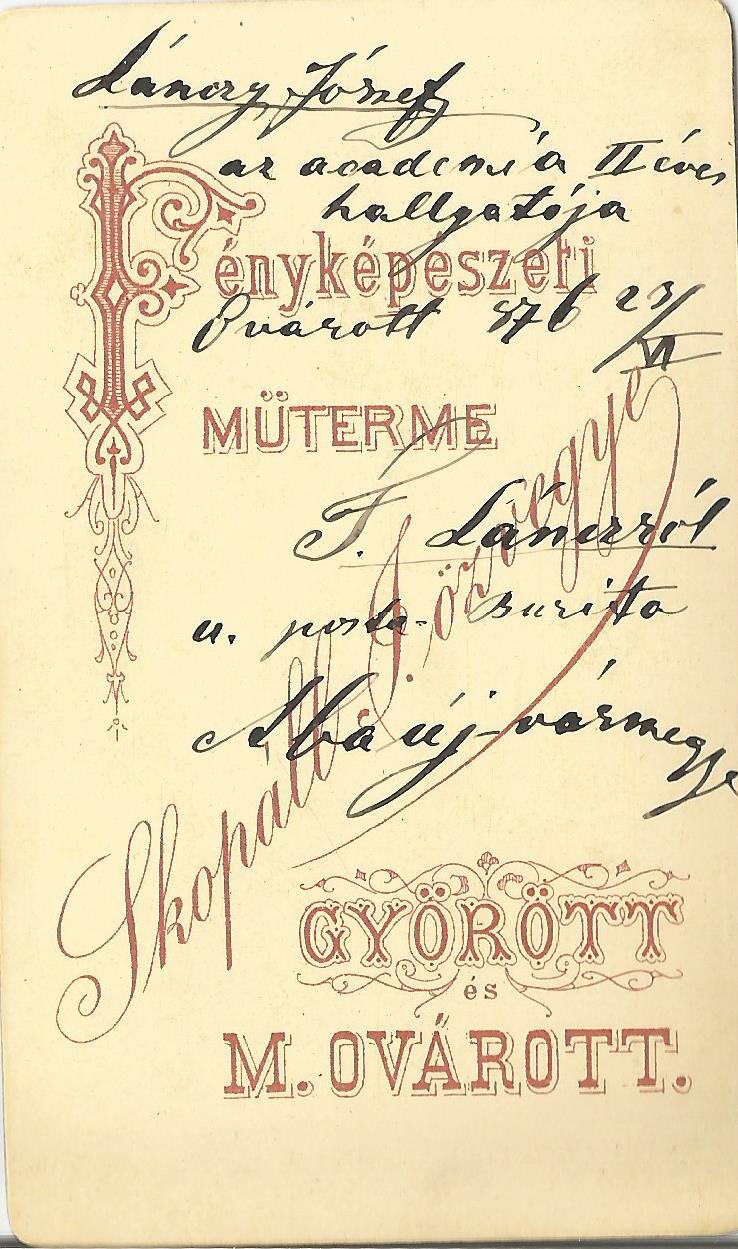 Lánczy József
az academia II éves
hallgatója
Fényképészeti
Ovárott 876 23/VI
MÜTERME
F. Lánczról
u. posta Buzitta
Abaúj-vármegye
Skopáll J. özvegye
GYŐRÖTT
és
M. OVÁROTT.